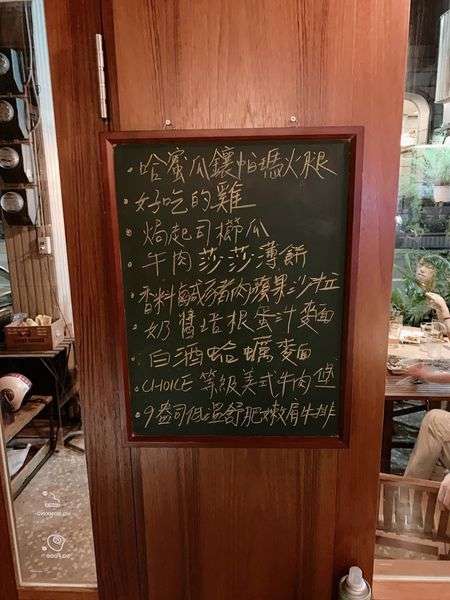 •哈蜜瓜鑲帕瑪火腿
•好吃的雞
•焗起司櫛瓜
•牛肉莎莎薄餅
•香料鹹豬肉蘋果沙拉
•奶醬培根蛋汁麵
•白酒蛤蠣麵
•CHOICE 等級美式牛肉堡
•9盎司低溫舒肥嫩肩牛排